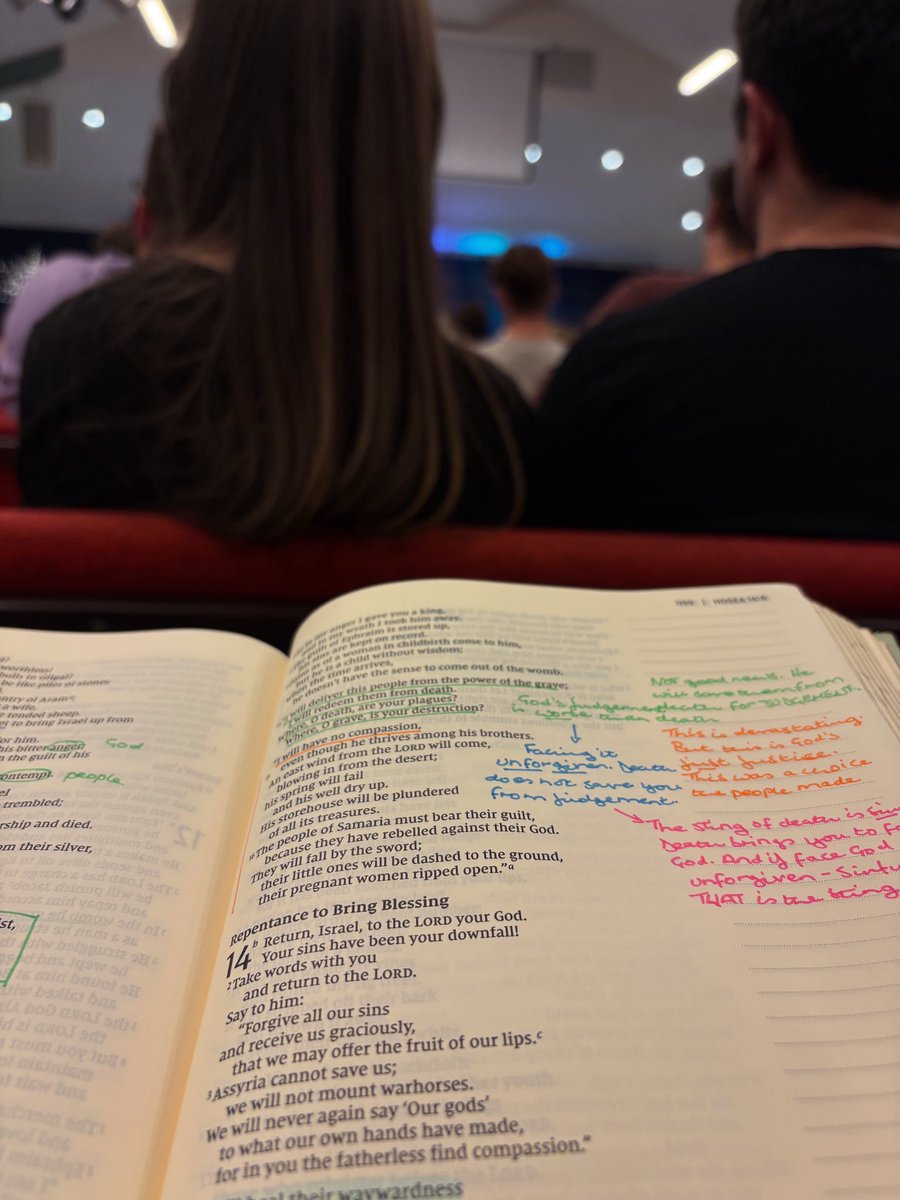 worthless?
be like piles of stones
a wife,
tended sheep.
to bring Israel up from
for him.
his bitter anger; God
the guilt of his
contempt. people
trembled;
and died.
from their silver,
in my anger I gave you a king,
in my wrath I took him away.
of Ephraim is stored up,
his sins are kept on record.
as of a woman in childbirth come to him,
he is a child without wisdom;
when the time arrives,
he doesn't have the sense to come out of the womb.
"I will deliver this people from the power of the grave;
I will redeem them from death.
Where, O death, are your plagues?
Where, O grave, is your destruction?
"I will have no compassion,
even though he thrives among his brothers.
An east wind from the LORD will come,
blowing in from the desert;
his spring will fail
and his well dry up.
His storehouse will be plundered
of all its treasures.
16The people of Samaria must bear their guilt,
because they have rebelled against their God.
They will fall by the sword;
their little ones will be dashed to the ground,
their pregnant women ripped open."a
Repentance to Bring Blessing
14 b Return, Israel, to the LORD your God.
Your sins have been your downfall!
2Take words with you
and return to the LORD.
Say to him:
"Forgive all our sins
and receive us graciously,
that we may offer the fruit of our lips.c
3Assyria cannot save us;
we will not mount warhorses.
We will never again say 'Our gods'
to what our own hands have made,
for in you the fatherless find compassion."
their waywardness
HOSEA
NOT good news. He
will save them from
death for JUDGEMENT
God's judgement
is worse than death
Facing it
unforgiven. Death
does not save you
from judgement.
This is devastating
But this is God's
just justice.
This was a choice
the people made
The sting of death is Sin
Death brings you to
God. And if face God
unforgiven -
THAT is the sting